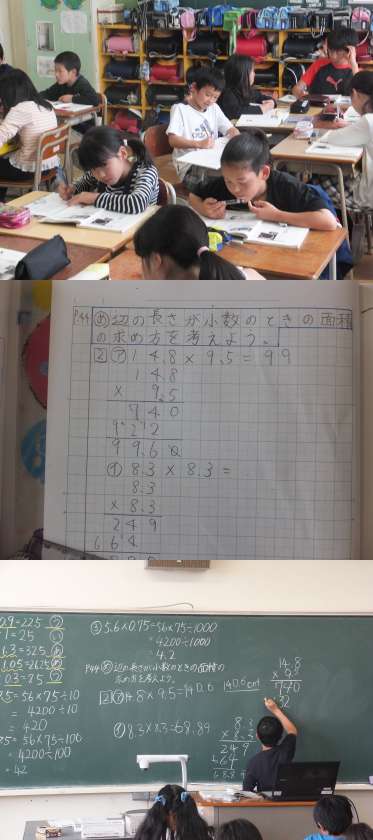 P.44 め 辺の長さが小数のときの面積
の求め方を考えよう。
2 ア 14.8×9.5=99
14.8
× 9.5
740
992
99.6
イ 8.3×8.3=
8.3
×8.3
249
664
0.9=225
1=25
1.3=325
1.05=2625
0.3=75
=56×75÷10
=4200÷10
=420
=56×75÷100
=4200÷100
=42
5.6×0.75=56×75÷1000
=4200÷1000
=4.2
P44 め 辺の長さが小数のときの面積の
求め方を考えよう。
2 ア 14.8×9.5=140.6 140.6cm²
イ 8.3×8.3=68.89
14.8
×9.5
740
32
8.3
×8.3
249
664